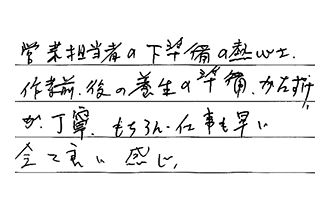 営業担当者の下準備の熱心さ.
作業前.後の養生の準備.かたずけ
が.丁寧.もちろん.仕事も早い
全て良い感じ.